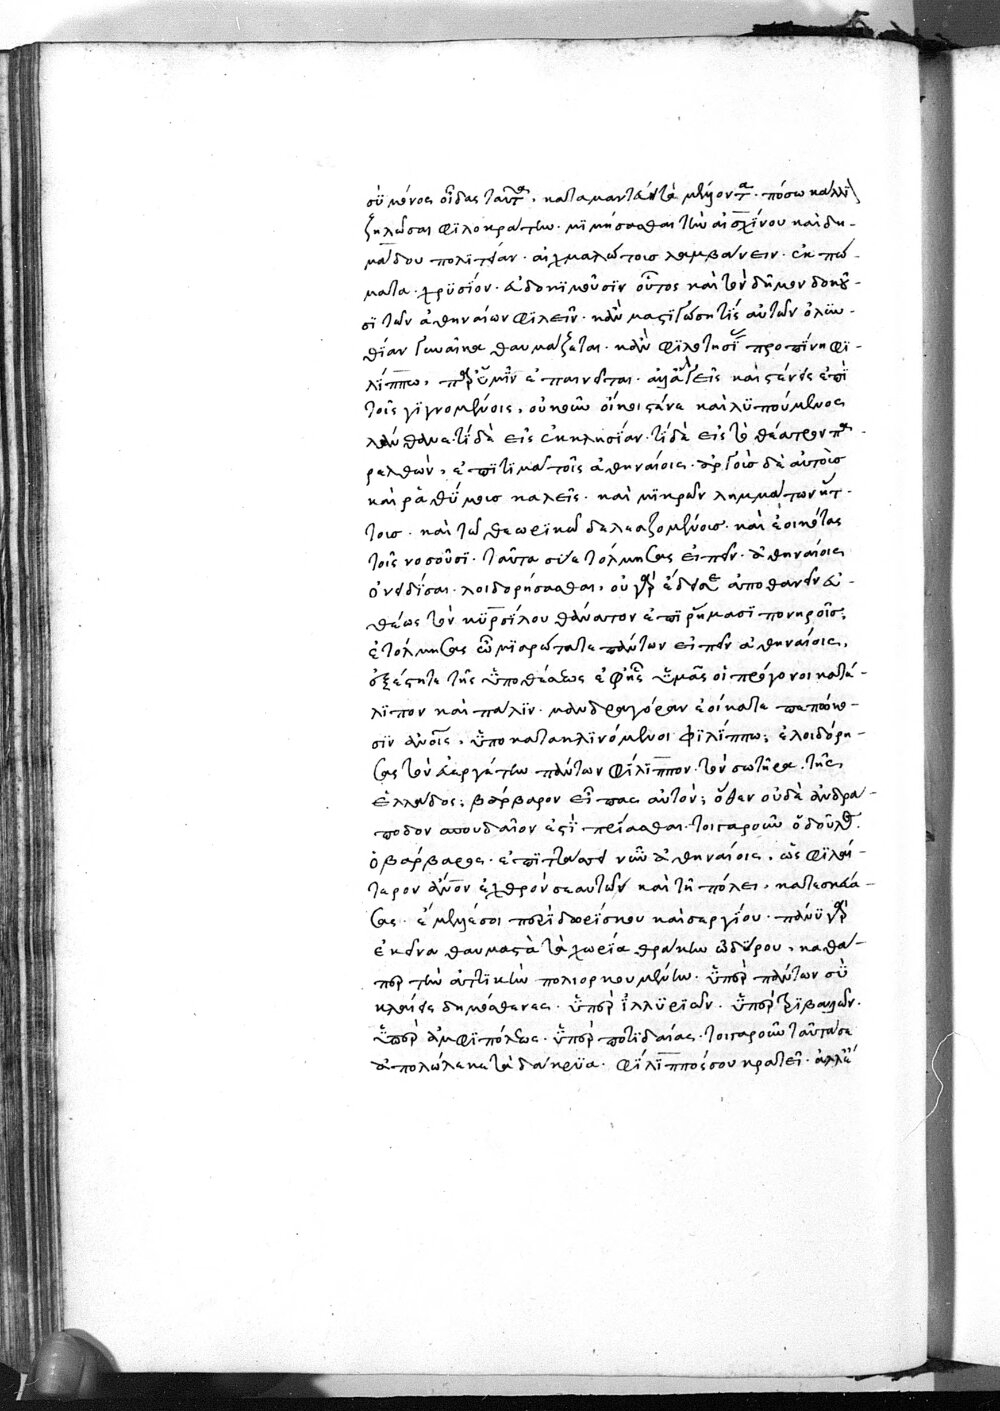 σὺ μόνος οἶδας ταῦτα, καταμαντεύῃ τὰ μέλλοντα. πόσω κάλλι
ζηλῶσαι φιλοκράτην. μιμήσασθαι τὴν αἰσχίνου καὶ δη-
μάδου πολιτείαν. αἰχμαλώτοις λαμβάνειν. ἐκπώ-
ματα. χρυσίον. εὐδοκιμοῦσιν οὗτος καὶ τὸν δῆμον δοκοῦ-
σι τῶν ἀθηναίων φιλεῖν. κἂν μαστιγώσῃ τίς αὐτῶν ὀλυν-
θίαν γυναῖκα θαυμάζεται. κἂν φιλοτησίας προπίνῃ φι-
λίππω, παρ' ὑμῖν ἐπαινεῖται. ἀλγεῖς καὶ στένεις ἐπὶ
τοῖς γιγνομένοις, οὐκοῦν οἴκοι στένε καὶ λυπούμενος
λάνθανε. τί δὲ εἰς ἐκκλησίαν. τί δὲ εἰς τὸ θέατρον πα-
ρελθὼν, ἐπιτιμᾶ τοῖς ἀθηναίοις. ἀργοὺς δὲ αὐτοὺς
καὶ ῥαθύμους καλεῖς. καὶ μικρῶν λημμάτων ἥτ-
τους. καὶ τῶ θεωρικῶ δελεαζομένους. καὶ ἐοικότας
τοῖς νοσοῦσι. ταῦτα σὺ ἐτόλμησας εἰπεῖν. ἀθηναίοις
ὀνειδίσαι. λοιδορήσασθαι, οὐ γὰρ ἔδεισας ἀποθανεῖν εὐ-
θέως τὸν κυρσίλου θάνατον ἐπὶ ῥήμασι πονηροῖς;
ἐτόλμησας ὦ μιαρώτατε πάντων εἰπεῖν ἀθηναίοις,
ἐξέστητε τῆς ὑποθέσεως ἐφ' ἧς ὑμᾶς οἱ πρόγονοι κατέ-
λιπον καὶ πάλιν. μανδραγόραν ἐοίκατε πεπωκό-
σιν ἀνθρώποις, ὑποκατακλινόμενοι φιλίππω; ἐλοιδόρη-
σας τὸν εὐεργέτην πάντων φίλιππον. τὸν σωτῆρα. τῆς
ἑλλάδος; βάρβαρον εἶπας αὐτὸν; ὅθεν οὐδὲ ἀνδρά-
ποδον σπουδαῖον ἐστὶ πρίασθαι. τοιγαροῦν ὁ δοῦλος.
ὁ βάρβαρος. ἐπιτάττει νῦν ἀθηναίοις. ὡς φιλαί-
τερον ἄνθρωπον ἐχθρὸν σεαυτῶ καὶ τῆ πόλει, κατεσκεύα-
σας. ἔμελέ σοι περὶ δορίσκου καὶ σερρίου. πάνυ γὰρ
ἐκεῖνα θαυμαστὰ τὰ χωρία θράκην ὠδύρου, καθά-
περ τὴν ἀττικὴν πολιορκουμένην. ὑπὲρ πάντων σὺ
κλαίεις δημόσθενες. ὑπὲρ ἰλλυριῶν. ὑπὲρ τριβαλλῶν.
ὑπὲρ ἀμφιπόλεως. ὑπὲρ ποτιδαίας. τοιγαροῦν ταῦτα σε
ἀπολώλεκε τὰ δάκρυα. φίλιππός σου κρατεῖ. ἀλλ'